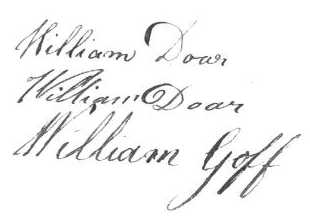 William Doar
William Doar
William Goff